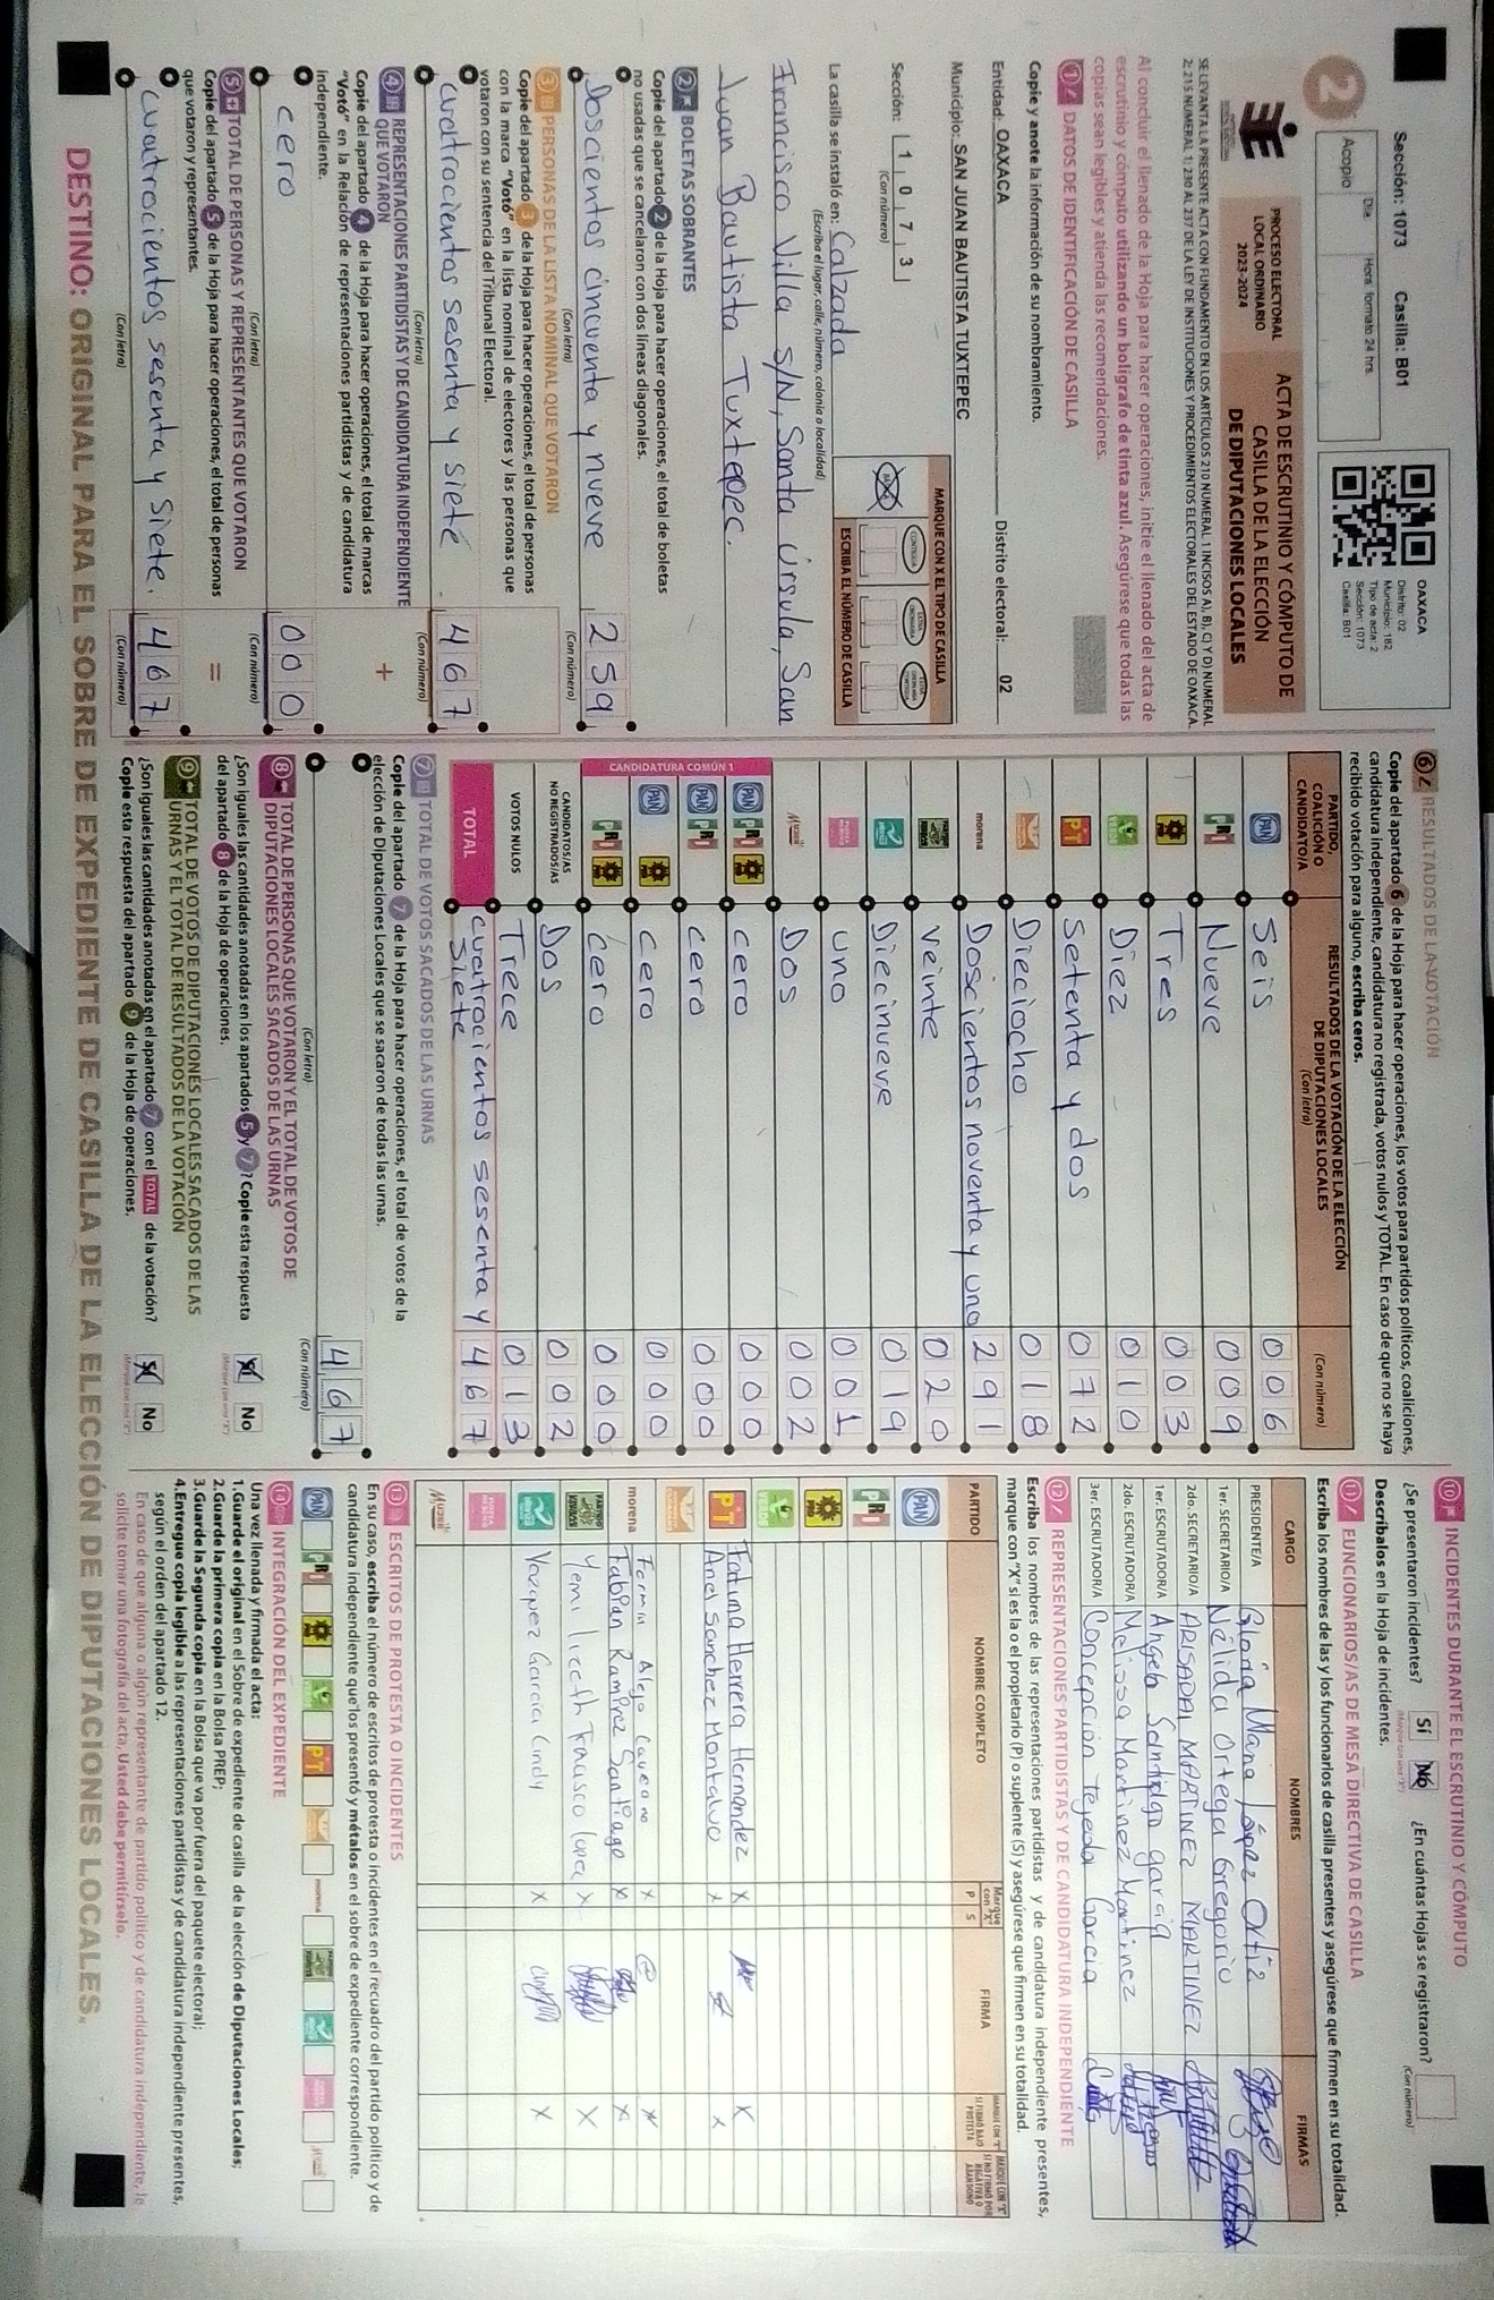 Sección: 1073 Casilla: B01
2
Acopio
Día
Hora formato 24 hrs.
OAXACA
Distrito: 02
Municipio: 182
Tipo de acta: 2
Sección: 1073
Casilla: B01
PROCESO ELECTORAL
LOCAL ORDINARIO
2023-2024
ACTA DE ESCRUTINIO Y CÓMPUTO DE
CASILLA DE LA ELECCIÓN
DE DIPUTACIONES LOCALES
SE LEVANTA LA PRESENTE ACTA CON FUNDAMENTO EN LOS ARTÍCULOS 210 NUMERAL 1, INCISOS A), B), C) Y D) NUMERAL
2; 215 NUMERAL 1; 230 AL 237 DE LA LEY DE INSTITUCIONES Y PROCEDIMIENTOS ELECTORALES DEL ESTADO DE OAXACA.
Al concluir el llenado de la Hoja para hacer operaciones, inicie el llenado del acta de
escrutinio y cómputo utilizando un bolígrafo de tinta azul. Asegúrese que todas las
copias sean legibles y atienda las recomendaciones.
1 DATOS DE IDENTIFICACIÓN DE CASILLA
Copie y anote la información de su nombramiento.
Entidad: OAXACA Distrito electoral: 02
Municipio: SAN JUAN BAUTISTA TUXTEPEC
Sección: 1 0 7 3
(Con número)
MARQUE CON X EL TIPO DE CASILLA
ESCRIBA EL NÚMERO DE CASILLA
La casilla se instaló en: Calzada
(Escriba el lugar, calle, número, colonia o localidad)
Francisco Villa S/N, Santa Úrsula, San
Juan Bautista Tuxtepec.
2 BOLETAS SOBRANTES
Copie del apartado 2 de la Hoja para hacer operaciones, el total de boletas
no usadas que se cancelaron con dos líneas diagonales.
Doscientos cincuenta y nueve 259
(Con letra) (Con número)
3 PERSONAS DE LA LISTA NOMINAL QUE VOTARON
Copie del apartado 3 de la Hoja para hacer operaciones, el total de personas
con la marca "Votó" en la lista nominal de electores y las personas que
votaron con su sentencia del Tribunal Electoral.
cuatrocientos sesenta y siete. 467
(Con letra) (Con número)
4 REPRESENTACIONES PARTIDISTAS Y DE CANDIDATURA INDEPENDIENTE
QUE VOTARON +
Copie del apartado 4 de la Hoja para hacer operaciones, el total de marcas
"Votó" en la Relación de representaciones partidistas y de candidatura
independiente.
cero 000
(Con letra) (Con número)
5 TOTAL DE PERSONAS Y REPRESENTANTES QUE VOTARON =
Copie del apartado 5 de la Hoja para hacer operaciones, el total de personas
que votaron y representantes.
cuatrocientos sesenta y siete. 467
(Con letra) (Con número)
6 RESULTADOS DE LA VOTACIÓN
Copie del apartado 6 de la Hoja para hacer operaciones, los votos para partidos políticos, coaliciones,
candidatura independiente, candidatura no registrada, votos nulos y TOTAL. En caso de que no se haya
recibido votación para alguno, escriba ceros.
PARTIDO,
COALICIÓN O
CANDIDATO/A
RESULTADOS DE LA VOTACIÓN DE LA ELECCIÓN
DE DIPUTACIONES LOCALES
(Con letra)
(Con número)
PAN Seis 006
PRI Nueve 009
Tres 003
VERDE Diez 010
PT Setenta y dos 072
Dieciocho 018
morena Doscientos noventa y uno 291
veinte 020
Diecinueve 019
uno 001
Mujer Dos 002
CANDIDATURA COMÚN 1
PAN PRI cero 000
PAN PRI cero 000
PAN cero 000
PRI cero 000
CANDIDATOS/AS
NO REGISTRADOS/AS Dos 002
VOTOS NULOS Trece 013
TOTAL cuatrocientos sesenta y
siete 467
7 TOTAL DE VOTOS SACADOS DE LAS URNAS
Copie del apartado 7 de la Hoja para hacer operaciones, el total de votos de la
elección de Diputaciones Locales que se sacaron de todas las urnas.
467
(Con letra) (Con número)
8 TOTAL DE PERSONAS QUE VOTARON Y EL TOTAL DE VOTOS DE
DIPUTACIONES LOCALES SACADOS DE LAS URNAS
¿Son iguales las cantidades anotadas en los apartados 5 y 7? Copie esta respuesta
del apartado 8 de la Hoja de operaciones.
Sí No
9 TOTAL DE VOTOS DE DIPUTACIONES LOCALES SACADOS DE LAS
URNAS Y EL TOTAL DE RESULTADOS DE LA VOTACIÓN
¿Son iguales las cantidades anotadas en el apartado 7 con el TOTAL de la votación?
Copie esta respuesta del apartado 9 de la Hoja de operaciones.
Sí No
10 INCIDENTES DURANTE EL ESCRUTINIO Y CÓMPUTO
¿Se presentaron incidentes? Sí No ¿En cuántas Hojas se registraron?
(Con número)
Descríbalos en la Hoja de incidentes.
11 FUNCIONARIOS/AS DE MESA DIRECTIVA DE CASILLA
Escriba los nombres de las y los funcionarios de casilla presentes y asegúrese que firmen en su totalidad.
CARGO NOMBRES FIRMAS
PRESIDENTE/A Gloria Maria López Ortiz
1er. SECRETARIO/A Nélida Ortega Gregorio
2do. SECRETARIO/A ABISADAI MARTINEZ MARTINEZ
1er. ESCRUTADOR/A Angela Santiago garcia
2do. ESCRUTADOR/A Melissa Martinez Martinez
3er. ESCRUTADOR/A Concepcion Tejeda Garcia
12 REPRESENTACIONES PARTIDISTAS Y DE CANDIDATURA INDEPENDIENTE
Escriba los nombres de las representaciones partidistas y de candidatura independiente presentes,
marque con "X" si es la o el propietario (P) o suplente (S) y asegúrese que firmen en su totalidad.
PARTIDO NOMBRE COMPLETO Marque con "X" P S FIRMA
PAN
PRI
VERDE
Fatima Herrera Hernandez X X
PT Anel Sanchez Montalvo X X
Fermin Alejo Cayetano X X
morena Fabian Ramirez Santiago X X
Yemi Liceth X X
Vazquez Garcia Cindy X X
Mujer
13 ESCRITOS DE PROTESTA O INCIDENTES
En su caso, escriba el número de escritos de protesta o incidentes en el recuadro del partido político y de
candidatura independiente que los presentó y métalos en el sobre de expediente correspondiente.
PAN PRI PT morena
14 INTEGRACIÓN DEL EXPEDIENTE
Una vez llenada y firmada el acta:
1.Guarde el original en el Sobre de expediente de casilla de la elección de Diputaciones Locales;
2.Guarde la primera copia en la Bolsa PREP;
3.Guarde la Segunda copia en la Bolsa que va por fuera del paquete electoral;
4.Entregue copia legible a las representaciones partidistas y de candidatura independiente presentes,
según el orden del apartado 12.
En caso de que alguna o algún representante de partido político y de candidatura independiente, le
solicite tomar una fotografía del acta, Usted debe permitírselo.
DESTINO: ORIGINAL PARA EL SOBRE DE EXPEDIENTE DE CASILLA DE LA ELECCIÓN DE DIPUTACIONES LOCALES.